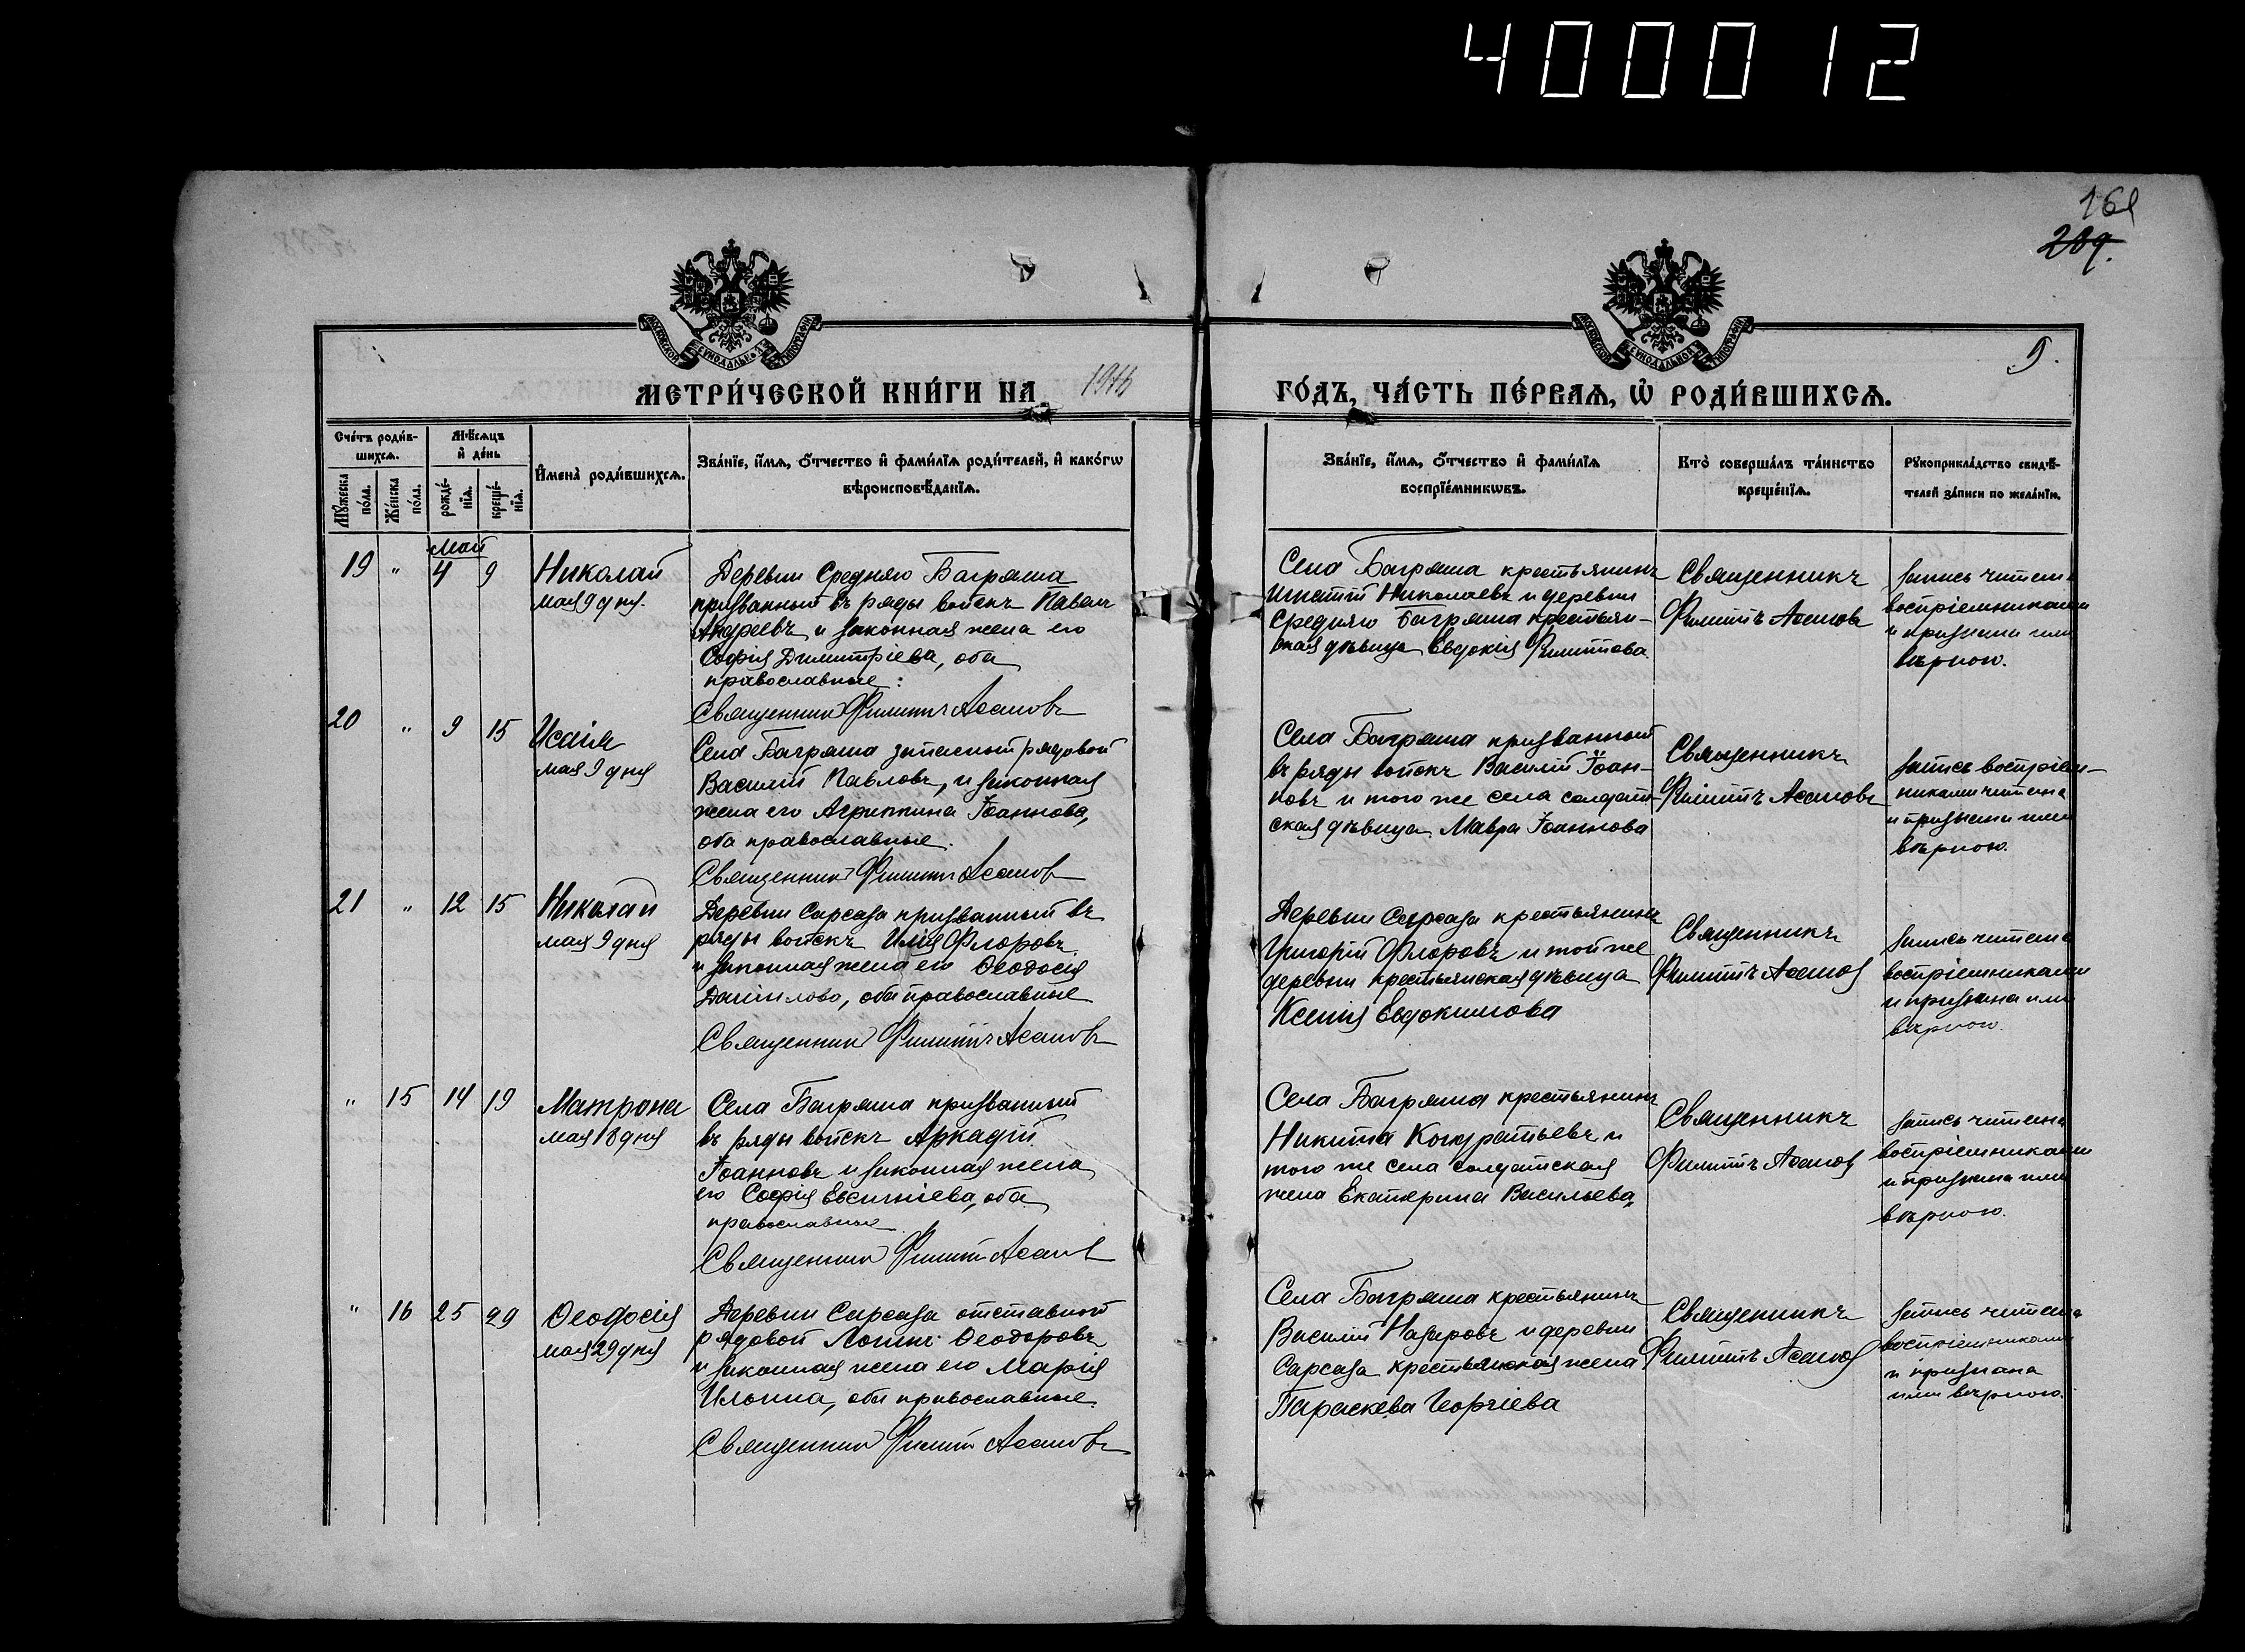 400012
161
289.
МОСКОВСКОЙ СѴНОДАЛЬНОЙ ТИПОГРАФІИ
МОСКОВСКОЙ СѴНОДАЛЬНОЙ ТИПОГРАФІИ
9.
МЕТРИ́ЧЕСКОЙ КНИ́ГИ НА 1916 ГО́ДЪ, ЧА́СТЬ ПЕ́РВАѦ, Ѡ҆ РОДИ́ВШИХСѦ.
Сче́тъ роди́в-
шихсѧ.
Мꙋ́жеска по́ла.
Же́нска по́ла.
Мѣ́сѧцъ
и҆ де́нь
рожде́-
нїѧ.
креще́-
нїѧ.
И҆мена̀ роди́вшихсѧ.
Зва́нїе, и҆́мѧ, ѻ҆́тчество и҆ фами́лїѧ роди́телей, и҆ како́гѡ
вѣроисповѣ́данїѧ.
Зва́нїе, и҆́мѧ, ѻ҆́тчество и҆ фами́лїѧ
воспрїе́мникѡвъ.
Кто̀ соверша́лъ та́инство
креще́нїѧ.
Рꙋкоприкла́дство свидѣ́-
телей за́писи по жела́нїю.
Май
19 " 4 9
Николай
мая 9 дня.
Деревни Средняго Багряша
призванный въ ряды войскъ Павелъ
Андреевъ и законная жена его
Софія Димитріева, оба
православные:
Священникъ Филиппъ Асановъ
Села Багряша крестьянинъ
Игнатій Николаевъ и деревни
Средняго Багряша крестьян-
ская дѣвица Евдокія Филиппова.
Священникъ
Филиппъ Асановъ
Запись читана
воспріемниками
и признана ими
вѣрною.
20 " 9 15
Исаія
мая 9 дня
Села Багряша запасный рядовой
Василій Павловъ, и законная
жена его Агриппина Іоаннова,
оба православные.
Священникъ Филиппъ Асановъ
Села Багряша призванный
въ ряды войскъ Василій Іоан-
новъ и того же села солдат-
ская дѣвица Мавра Іоаннова
Священникъ
Филиппъ Асановъ
Запись воспріем-
никами читана
и признана ими
вѣрною.
21 " 12 15
Николай
мая 9 дня
Деревни Сарсаза призванный въ
ряды войскъ Илія Флоровъ
и законная жена его Ѳеодосія
Даніилова, оба православные
Священникъ Филиппъ Асановъ
Деревни Сарсаза крестьянинъ
Григорій Флоровъ и той же
деревни крестьянская дѣвица
Ксенія Евдокимова
Священникъ
Филиппъ Асановъ
Запись читана
воспріемниками
и признана ими
вѣрною.
" 15 14 19
Матрона
мая 18 дня
Села Багряша призванный
въ ряды войскъ Аркадій
Іоанновъ и законная жена
его Софія Евсигніева, оба
православные
Священникъ Филиппъ Асановъ
Села Багряша крестьянинъ
Никита Кондратьевъ и
того же села солдатская
жена Екатерина Васильева,
Священникъ
Филиппъ Асановъ
Запись читана
воспріемниками
и признана ими
вѣрною.
" 16 25 29
Ѳеодосія
мая 29 дня
Деревни Сарсаза отставной
рядовой Логинъ Ѳеодоровъ
и законная жена его Марія
Ильина, оба православные.
Священникъ Филиппъ Асановъ
Села Багряша крестьянинъ
Василій Назаровъ и деревни
Сарсаза крестьянская жена
Параскева Георгіева
Священникъ
Филиппъ Асановъ
Запись читана
воспріемниками
и признана
ими вѣрною.